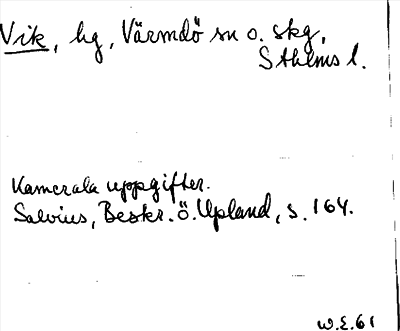 Vik, hg, Värmdö sn o. skg,
Sthlms l.
Kamerala uppgifter.
Salvius, Beskr. ö. Upland, s. 164.
W.E. 61